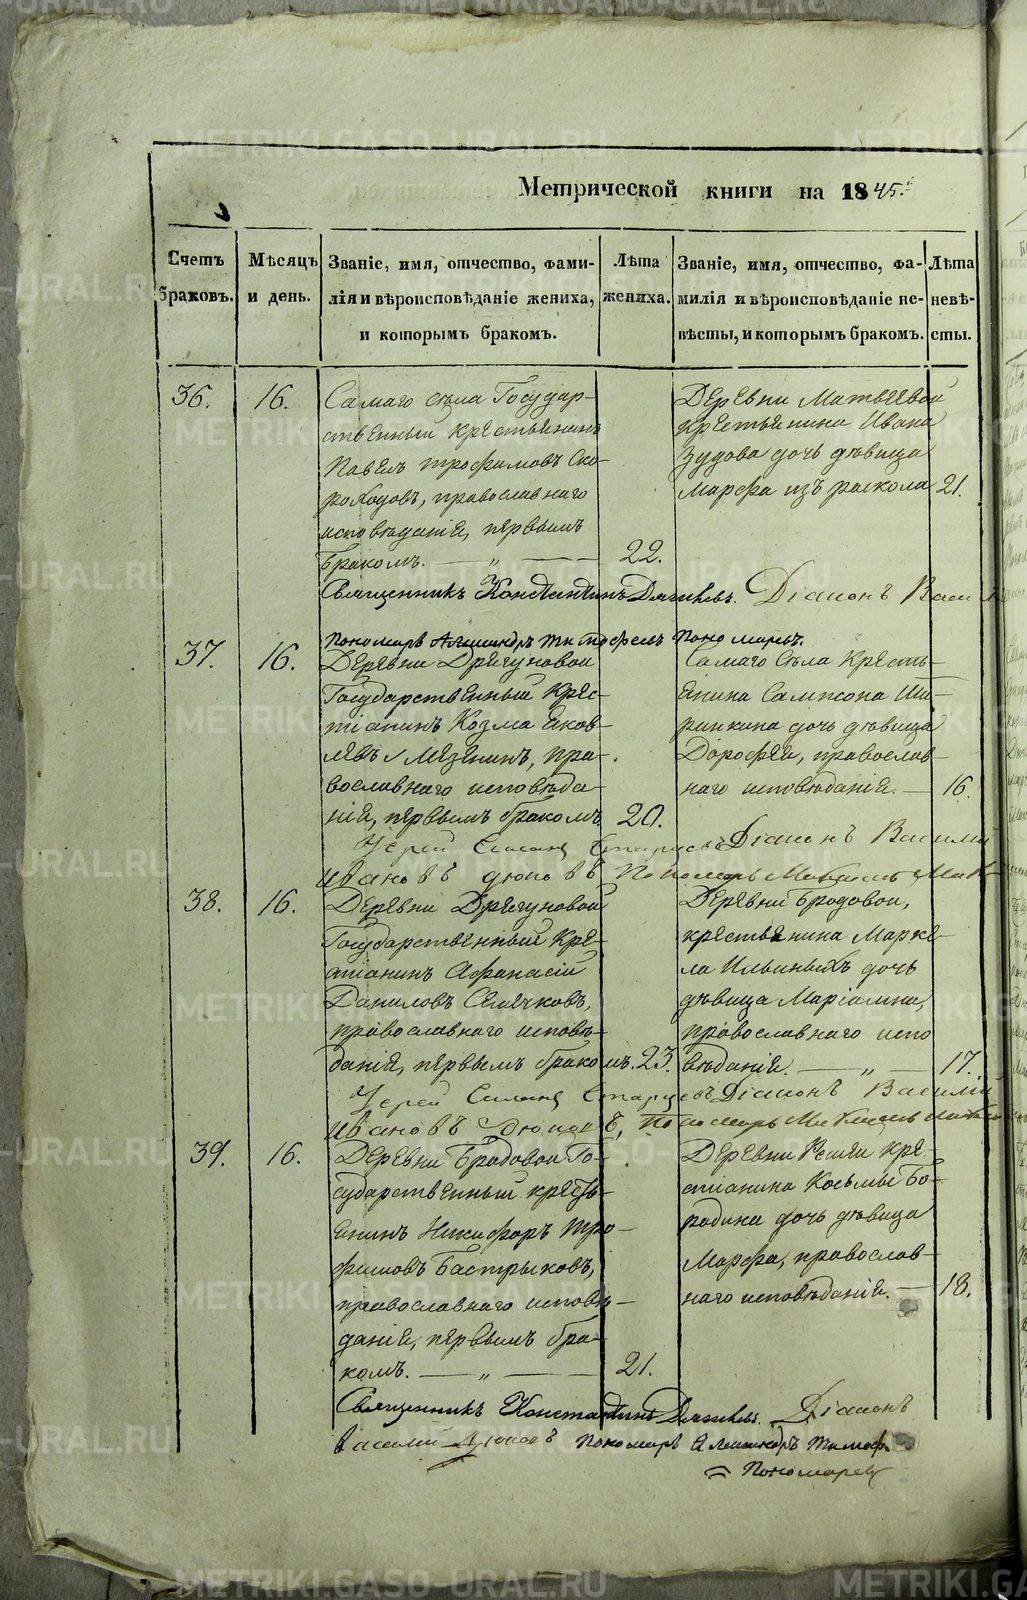 Метрической книги на 1845.
Счетъ браковъ.
Мѣсяцъ и день.
Званіе, имя, отчество, фами-
лія и вѣроисповѣданіе жениха,
и которымъ бракомъ.
Лѣта жениха.
Званіе, имя, отчество, фа-
милія и вѣроисповѣданіе не-
вѣсты, и которымъ бракомъ.
Лѣта невѣ-
сты.
36. 16.
Самаго села Государ-
ственный крестьянинъ
Павелъ Трофимовъ Ско-
роходовъ, православнаго
исповѣданія, первымъ
бракомъ. — „ — 22.
Деревни Матвеевой
крестьянина Ивана
Зудова дочь дѣвица
Марфа изъ раскола 21.
Священникъ Константинъ Діаконъ
Пономарь Александръ Тимофеевъ Пономаревъ.
37. 16.
Деревни Брагуновой
Государственный крес-
тіанинъ Козма Яков-
левъ Мезенинъ, пра-
вославнаго исповѣда-
нія, первымъ бракомъ 20.
Самаго села кресть-
янина Сампсона Ши-
ринкина дочь дѣвица
Дорофея, православ-
наго исповѣданія. — 16.
Іерей Діаконъ Василій
Ивановъ Пономарь
38. 16.
Деревни Брагуновой
Государственный кре-
стіанинъ Афанасій
Даниловъ Семячковъ,
православнаго исповѣ-
данія, первымъ бракомъ. 23.
Деревни Бродовой,
крестьянина Марке-
ла Ильиныхъ дочь
дѣвица Маріамна,
православнаго испо
вѣданія. — „ — 17.
Іерей Діаконъ Василій
Ивановъ Пономарь
39. 16.
Деревни Бродовой Го-
сударственный кресть-
янинъ Никифоръ Тро-
фимовъ Бастрыковъ,
православнаго исповѣ-
данія, первымъ бра-
комъ. — „ — 21.
Деревни кре-
стіанина Косьмы Бо-
родина дочь дѣвица
Марфа, православ-
наго исповѣданія. — 18.
Священникъ Константинъ Діаконъ
Василій Пономарь Александръ Тимоф.
= Пономаревъ